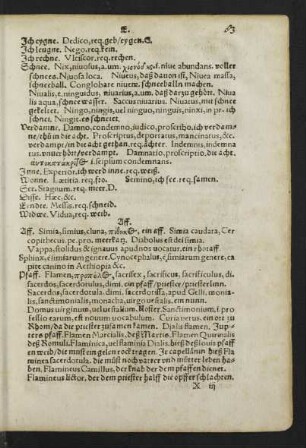 E. 63
Ich eygne. Dedico, req. geb/eygen. E.
Ich leugne. Nego, req. kein.
Ich reche. Vlciscor, req. rechen.
Schnee. Nix, niuosus, a. um. niue abundans. voller
schnees. Niuosa loca. Niueus, daß dauon ist, Niuea massa,
schneeball. Conglobare niuem. schneeballn machen.
Niualis, t. ninguidus, niuarius, a. um. daß darzu gehört. Niua
lis aqua, schneewasser. Saccus niuarius. Niuatus, mit schnee
gekelet. Ningo, ningis, uel ninguo, ninguis, ninxi. in pr. ich
schnei. Ningit. es schneiet.
Verdamne. Damno, condemno, iudico, proscribo, ich verdam-
ne/thů in die acht. Proscriptus, deportatus, mancinatus, &c.
verdampt/in die acht gethan. req. ächter. Indemnis, indemna
tus. unuerhört/verdampt. Damnatio, proscriptio, die acht.
i. scriptum condemnans.
Inne. Experior, ich werd inne. req. weiß.
Wonne. Lætitia. req. fro. Semino, ich see. req. samen.
See. Stagnum. req. meer. D.
Eisse. Hæc. &c.
Erndte. Messis, req. schneid.
Widwe. Vidua, req. weib.
Aff.
Aff. Simia, simius, cluna, ein aff. Simia caudata, Cer
copithecus. pe. pro. meerkatz. Diabolus est dei simia.
Vappa, stolidus & ignauus apud nos uocatur. ein rhoraff.
Sphinx, è simiarum genere. Cynocephalus, è simiarum genere, ca
pite canino in Aethiopia &c.
Pfaff. Flamen, sacrifex, sacrificus, sacrificulus, di.
sacerdos, sacerdotulus, dimi. ein pfaff/priester/priesterlinn.
Sacerdos, sacerdotula, dimi. sacerdotissa, apud Gelli. monia-
lis, sanctimonialis, sacerdotula apud Varronem. ein nunn.
Domus uirginum, uel uestalium, kloster. Sanctimonium, i. pro
fessio earum, est nostrum uocabulum. Curia uetus. ein ort zu
Rhom/da die priester zu samen kamen. Dialis flamen, Jup-
ters pfaff. Flamen Martialis, deß Martis. Flamen Quirinalis
deß Romuli. Flaminica, uel flaminis Dialis. hieß deß Jouis pfaff
en weib/die můst ein gelen rock tragen. Je capellänin hieß Fla
minia sacerdotula. die můst noch vatter vnd můtter leben ha-
ben. Flamineus Camillus, der knab der dem pfaffen dienet.
Flamineus lictor, der dem priester halff die opffer schlachten.
X iij